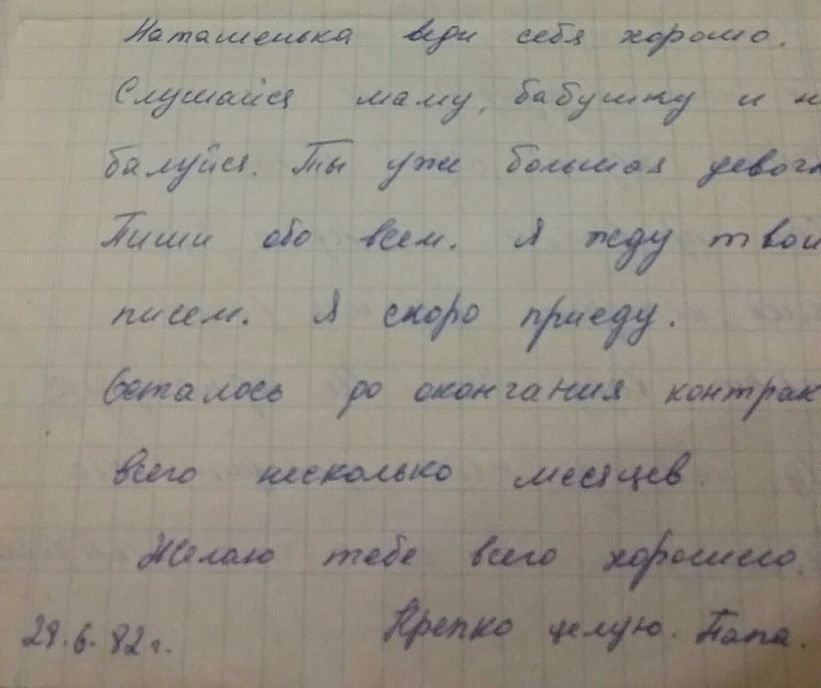 Наташенька веди себя хорошо.
Слушайся маму, бабушку и н
балуйся. Ты уже большая девочк
Пиши обо всем. Я жду твои
писем. Я скоро приеду.
Осталось до окончания контрак
всего несколько месяцев
Желаю тебе всего хорошего.
Крепко целую. Папа.
29.6.82 г.